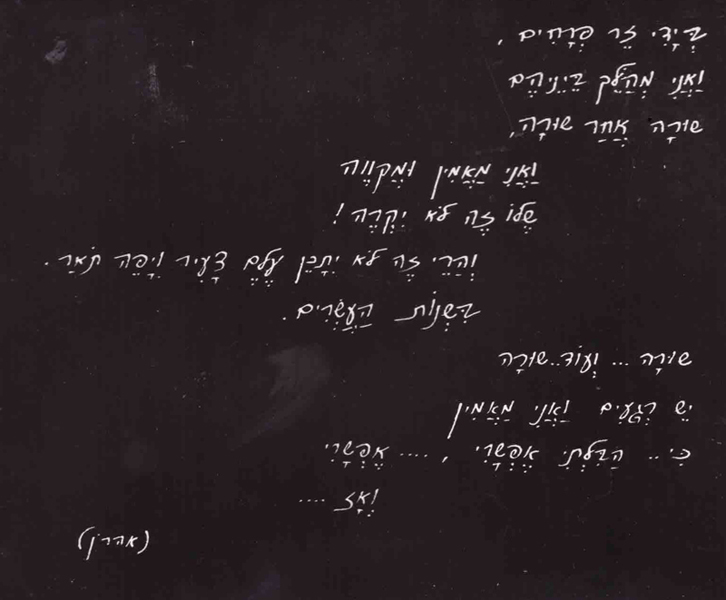 בְּיָדִי זֵר פְּרָחִים,
וַאֲנִי מְהַלֵּךְ בֵּינֵיהֶם
שׁוּרָה אַחַר שׁוּרָה,
וַאֲנִי מַאֲמִין וּמְקַוֶּוה
שֶׁלוֹ זֶה לֹא יִקְרֶה!
וַהֲרֵי זֶה לֹא יִתָּכֵן עֶלֶם צָעִיר וִיפֵה תֹּאַר.
בִּשְׁנוֹת הָעֶשְׂרִים.
שׁוּרָה ... וְעוֹד..שׁוּרָה
יֵשׁ רְגָעִים וַאֲנִי מַאֲמִין
כִּי.. הַבִּלְתִּי אֶפְשָׁרִי , .... אֶפְשָׁרִי
וְאָז ....
(אהרן)